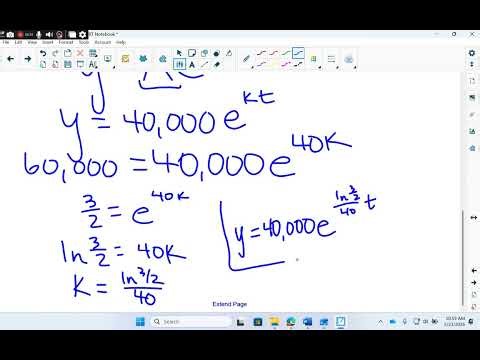 RT Notebook *
File Edit View Insert Format Tools Add-ons Help
y = 40,000 e^{kt}
60,000 = 40,000 e^{40K}
3/2 = e^{40K}
ln 3/2 = 40K
K = ln 3/2 / 40
y = 40,000 e^{ln 3/2 / 40 t}
Extend Page
Search
10:59 AM